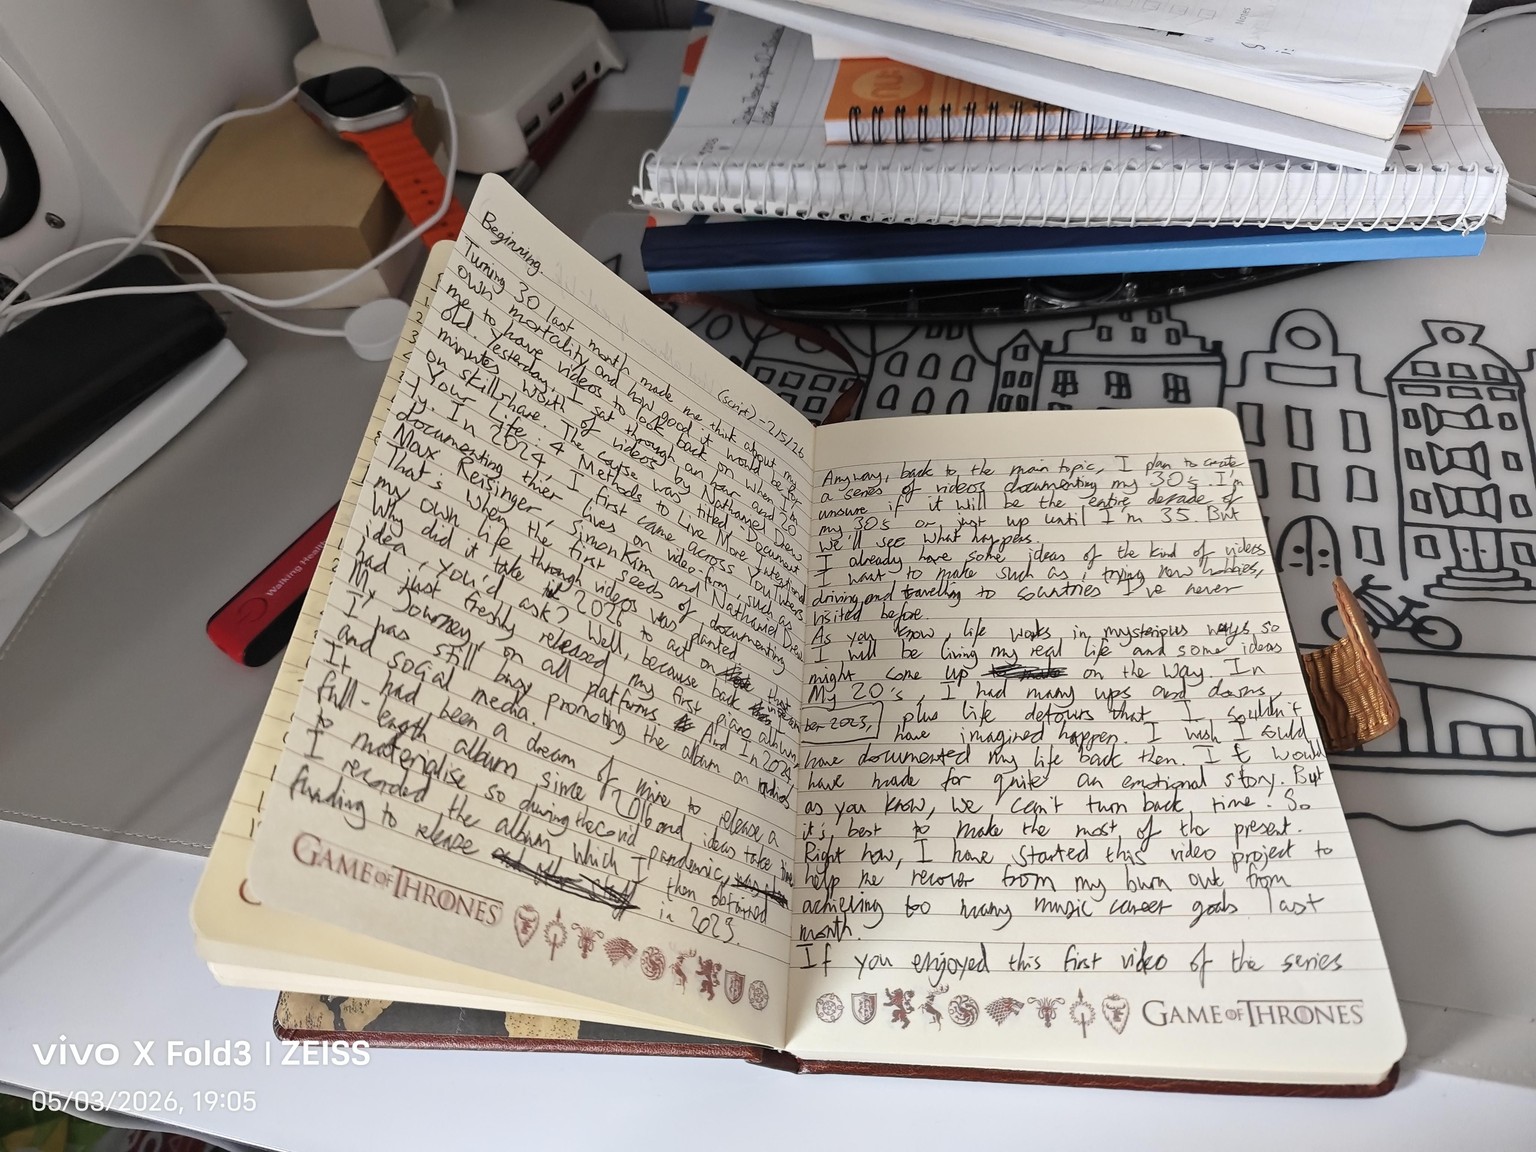 Beginning.
(script) - 2/5/26
Turning 30 last month, made me think about my
own mortality and how good it would be for
me to have videos to look back on when I'm
old. Yesterday, I sat through an hour and 20
minutes worth of videos by Nathaniel Drew
on skillshare. The course was titled Document
Your Life: 4 Methods to Live More Intentional
ly. In 2024, I first came across YouTubers
documenting thier lives on video form, such as
Max Reisinger, Simon Kim and Nathaniel Drew.
That's when the first seeds of documenting
my own life through videos was planted
Why did it take til 2026 to act on this
idea, you'd ask? Well, because back then
I had just freshly released my first piano album,
My Journey, on all platforms. And In 2024,
I was still busy promoting the album on radios
and social media.
It had been a dream of mine to release a
full-length album since 2016 and ideas take time
to materialise so during the covid pandemic,
I recorded the album which I then obtained
funding to release in 2023.
GAME OF THRONES
Anyway, back to the main topic, I plan to create
a series of videos documenting my 30s. I'm
unsure if it will be the entire decade of
my 30s or just up until I'm 35. But
we'll see what happens.
I already have some ideas of the kind of videos
I want to make such as, trying new hobbies,
driving and travelling to countries I've never
visited before.
As you know, life works in mysterious ways so
I will be living my real life and some ideas
might come up on the way. In
My 20's, I had many ups and downs,
ber 2023, plus life detours that I couldn't
have imagined happen. I wish I could
have documented my life back then. It would
have made for quite an emotional story. But
as you know, we can't turn back time. So
it's best to make the most of the present.
Right now, I have started this video project to
help me recover from my burn out from
achieving too many music career goals last
month.
If you enjoyed this first video of the series
GAME OF THRONES
Walking Heal
Notes
nu
vivo X Fold3 | ZEISS
05/03/2026, 19:05